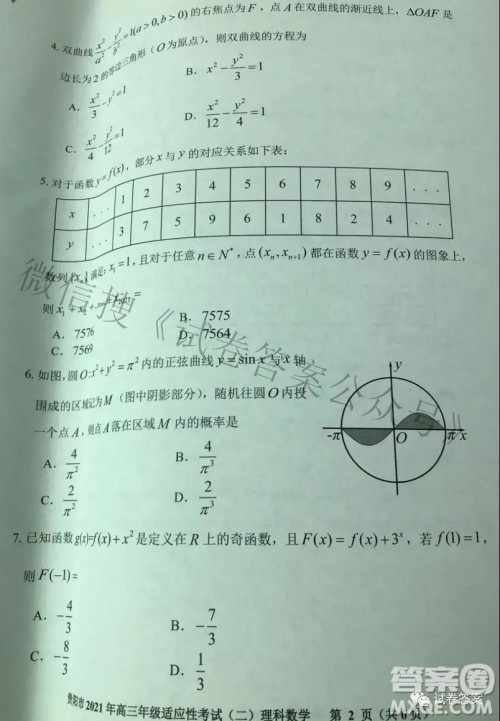 4. 双曲线 x²/a² - y²/b² = 1(a>0, b>0) 的右焦点为 F，点 A 在双曲线的渐近线上，△OAF 是
边长为 2 的等边三角形（O 为原点），则双曲线的方程为
A. x²/3 - y² = 1
B. x² - y²/3 = 1
C. x²/4 - y²/12 = 1
D. x²/12 - y²/4 = 1
5. 对于函数 y=f(x)，部分 x 与 y 的对应关系如下表：
x ... 1 2 3 4 5 6 7 8 9 ...
y ... 3 7 5 9 6 1 8 2 4 ...
数列{xₙ}满足: x₁=1，且对于任意 n∈N*，点 (xₙ, xₙ₊₁) 都在函数 y=f(x) 的图象上，
则 x₁+x₂+...+
A. 7576
B. 7575
C. 7569
D. 7564
6. 如图，圆 O: x²+y²=π² 内的正弦曲线 y=sin x 与 x 轴
围成的区域记为 M（图中阴影部分），随机往圆 O 内投
一个点 A，则点 A 落在区域 M 内的概率是
A. 4/π²
B. 4/π³
C. 2/π²
D. 2/π³
y
-π O π x
7. 已知函数 g(x)=f(x)+x² 是定义在 R 上的奇函数，且 F(x)=f(x)+3ˣ，若 f(1)=1，
则 F(-1)=
A. -4/3
B. -7/3
C. -8/3
D. 1/3
贵阳市 2021 年高三年级适应性考试（二）理科数学 第 2 页（共 6 页）
微信搜《试卷答案公众号》
答案圈
试卷答案